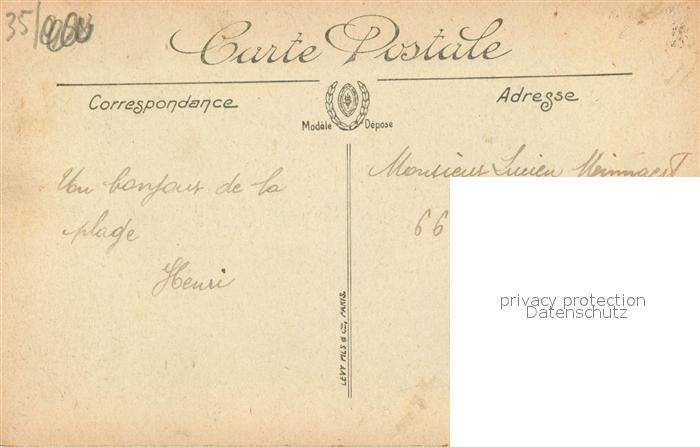 35/
Carte Postale
Correspondance
Adresse
Modèle Déposé
Un bonjour de la
plage
Henri
Monsieur Lucien
66
LÉVY FILS & Cie, PARIS.
privacy protection
Datenschutz